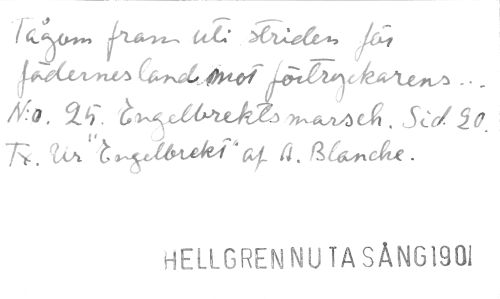 Tågom fram uti striden för
fädernesland mot förtryckarens...
N:o. 25. Engelbrektsmarsch. Sid. 20.
Tx. Ur "Engelbrekt" af A. Blanche.
HELLGREN NUTA SÅNG 1901